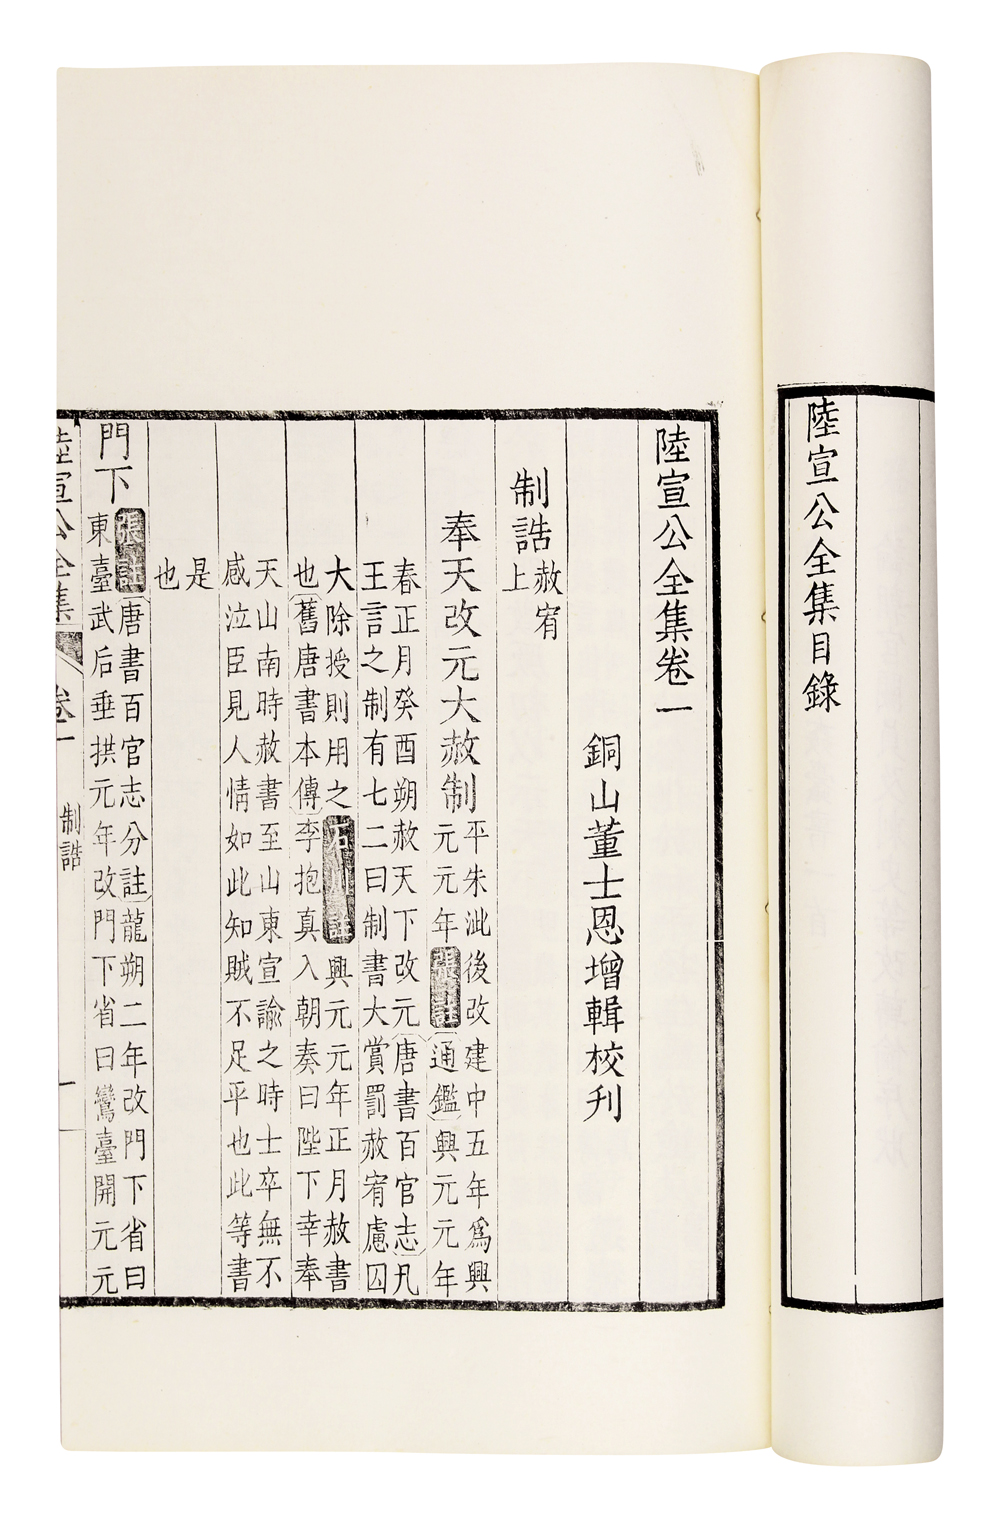 陸宣公全集目錄
陸宣公全集卷一
銅山董士恩增輯校刊
制誥
赦宥
上
奉天改元大赦制
平朱泚後改建中五年爲興
元元年張註〔通鑑〕興元元年
春正月癸酉朔赦天下改元〔唐書百官志〕凡
王言之制有七二曰制書大賞罰赦宥慮囚
大除授則用之石川註興元元年正月赦書
也〔舊唐書本傳〕李抱真入朝奏曰陛下幸奉
天山南時赦書至山東宣諭之時士卒無不
感泣臣見人情如此知賊不足平也此等書
是
也
門下
張註〔唐書百官志分註〕龍朔二年改門下省曰
東臺武后垂拱元年改門下省曰鸞臺開元元
陸宣公全集 卷一 制誥 一